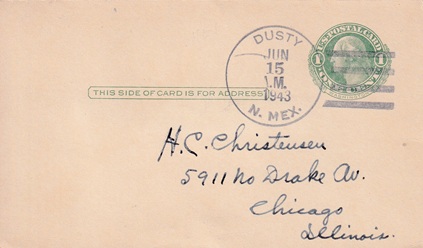 DUSTY
JUN
15
.M.
1943
N. MEX.
U.S. POSTAL CARD
1 1
THIS SIDE OF CARD IS FOR ADDRESS
H.C. Christensen
5911 No Drake Av.
Chicago
Illinois.